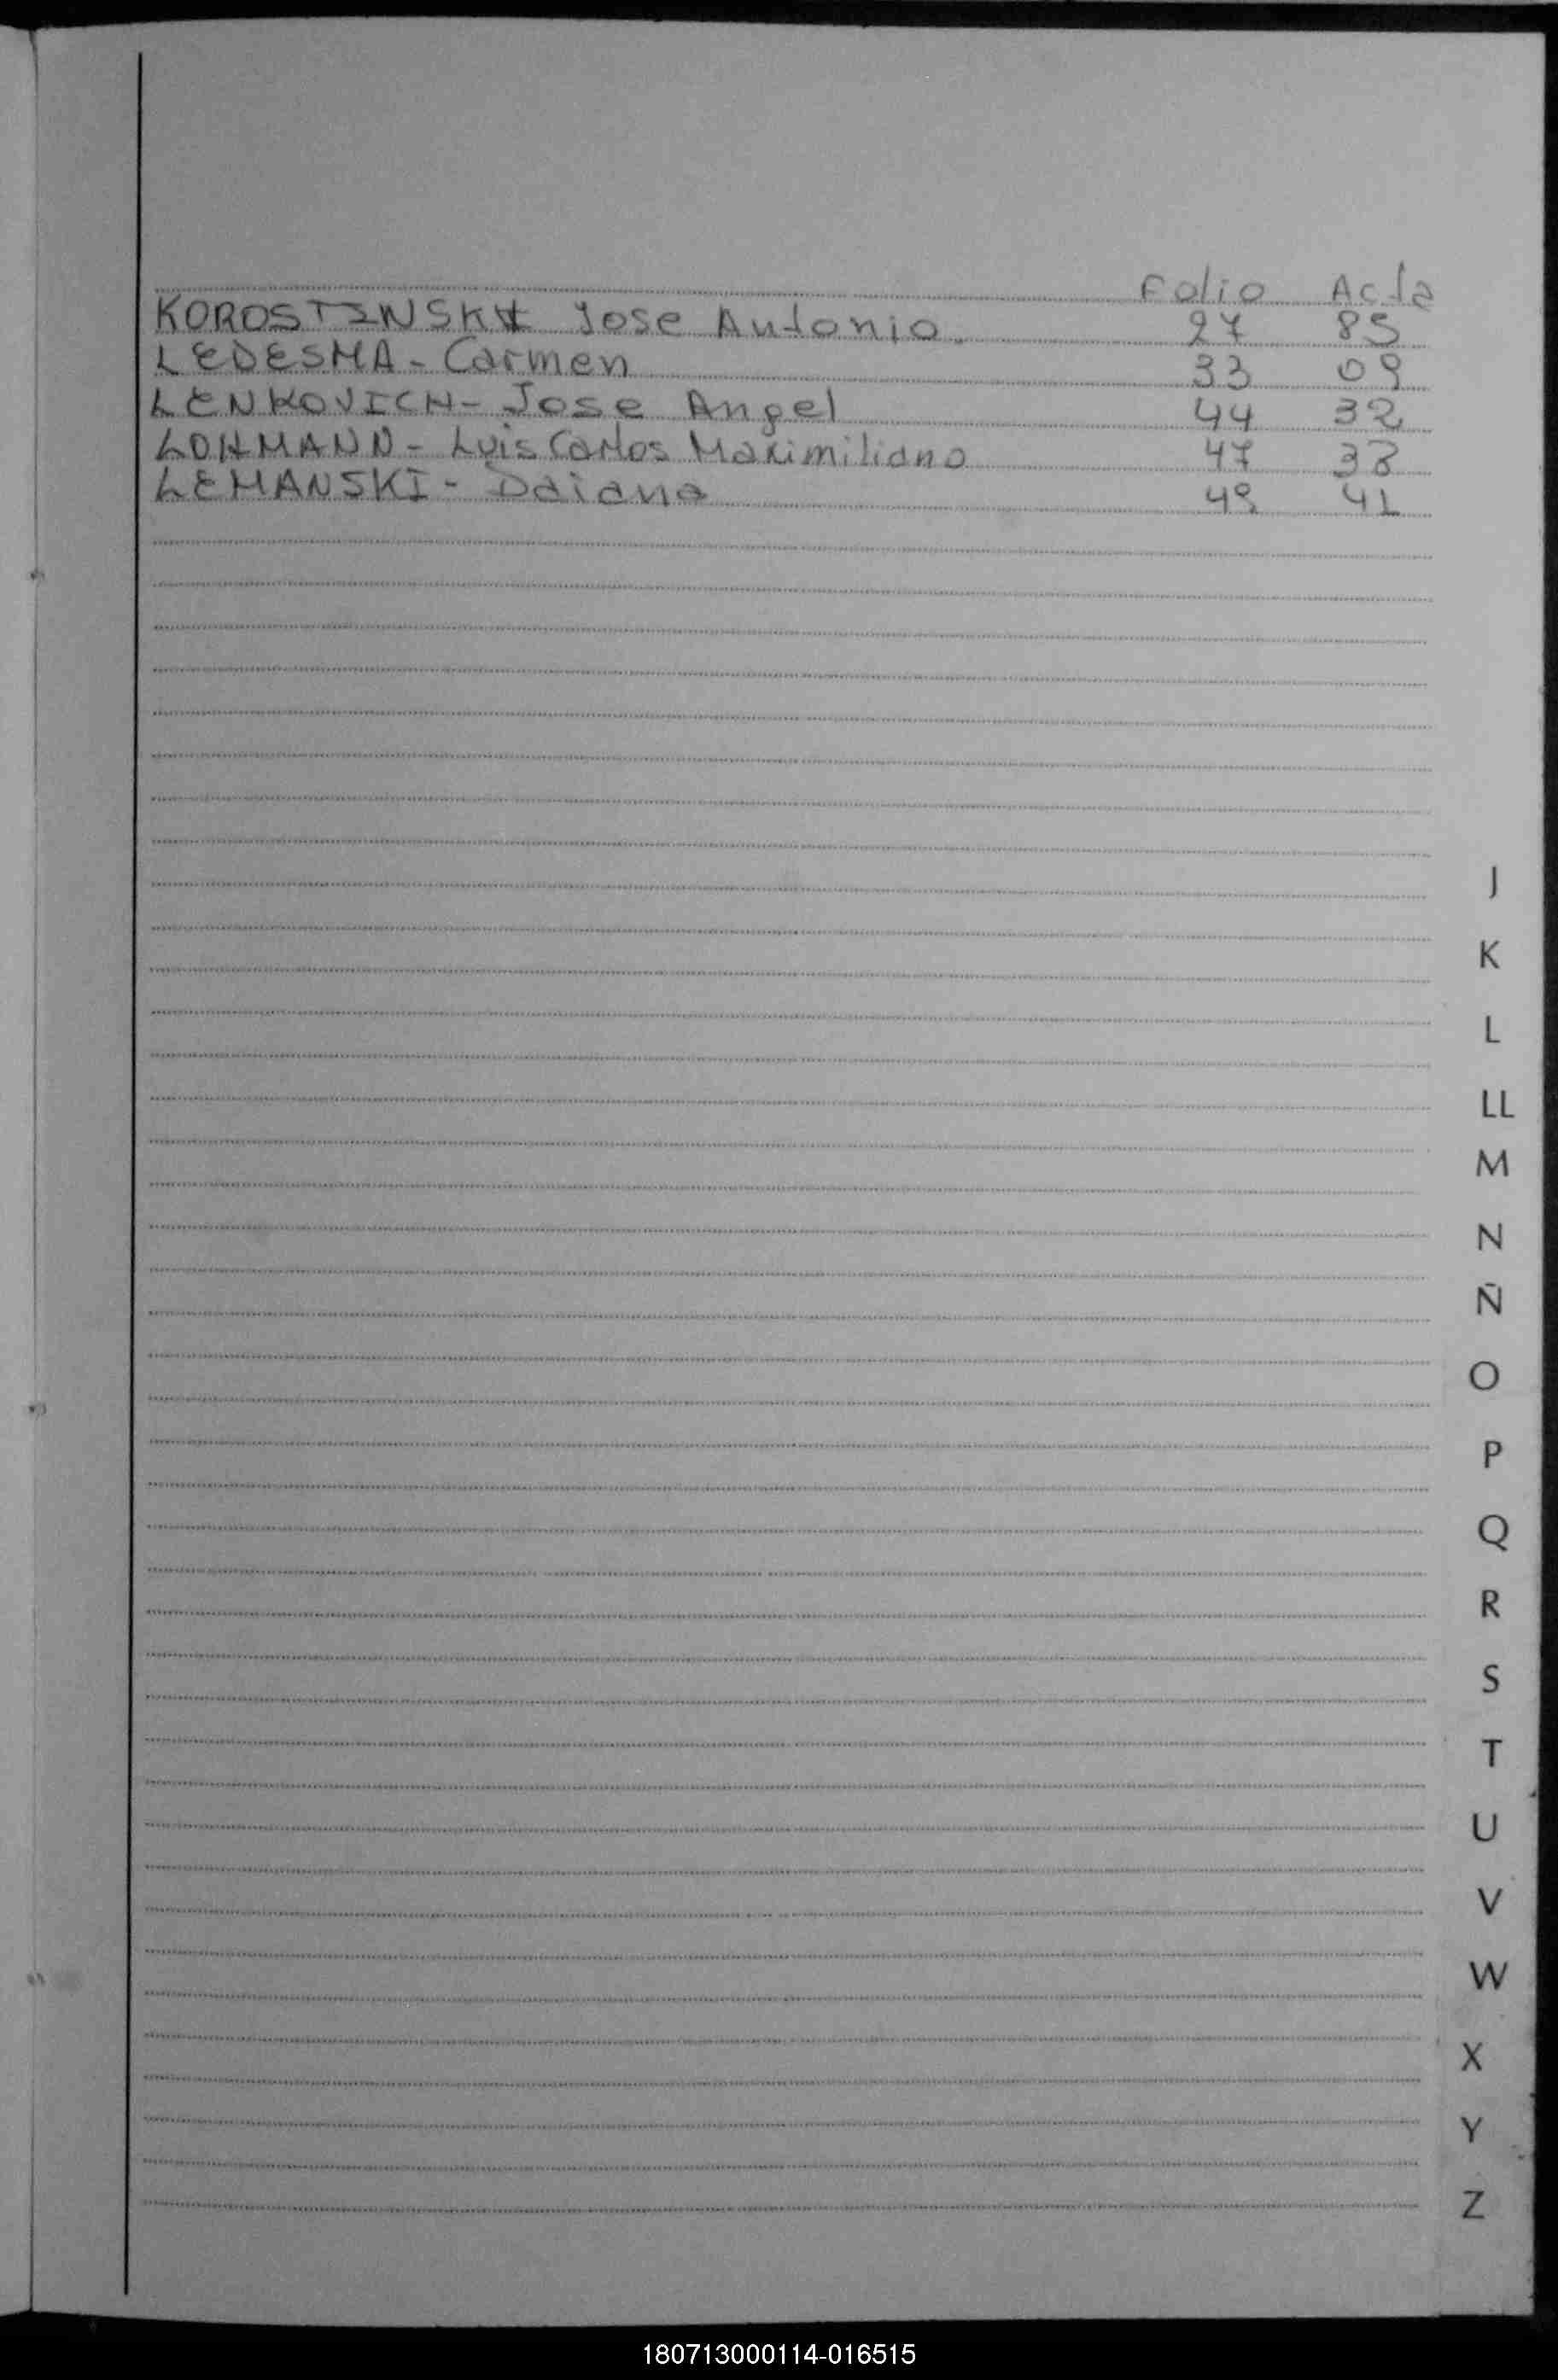 Folio Acta
KOROSTINSKY Jose Antonio. 27 85
LEDESMA - Carmen 33 09
LENKOVICH - Jose Angel 44 32
LOHMANN - Luis Carlos Maximiliano 47 38
LEMANSKI - Daiana 49 41
J
K
L
LL
M
N
Ñ
O
P
Q
R
S
T
U
V
W
X
Y
Z
180713000114-016515